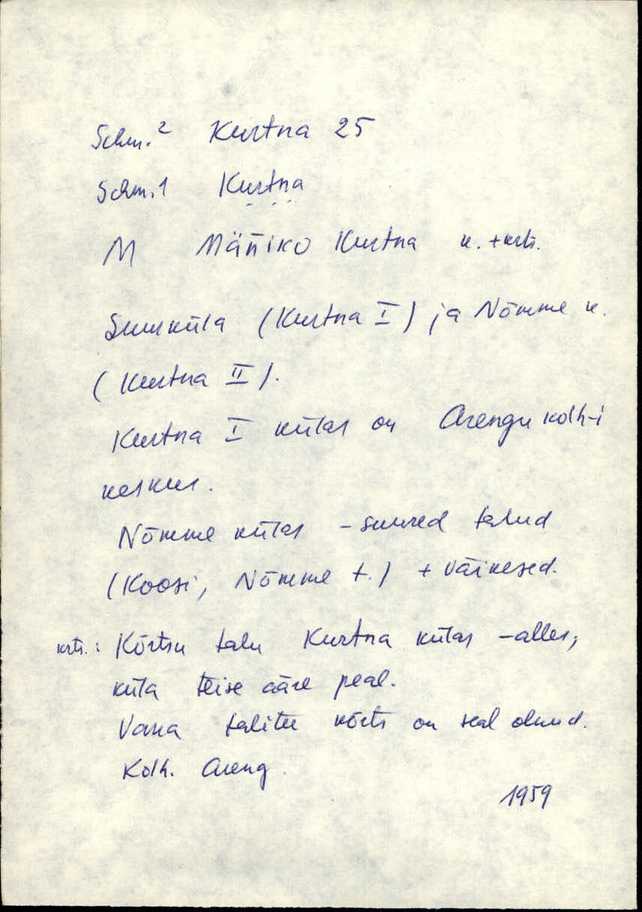 Schm.² Kurtna 25
Schm.1 Kurtna
M Mäñiko Kurtna k. + krts.
Suurküla (Kurtna I) ja Nõmme k.
(Kurtna II).
Kurtna I külas on Arengu kolh-i
keskus.
Nõmme külas - suured talud
(Koosi, Nõmme t.) + väikesed.
krts.: Kõrtsu talu Kurtna külas - alles,
küla teise ääre peal.
Vana talitee kõrts on seal olnud.
Kolh. Areng.
1959